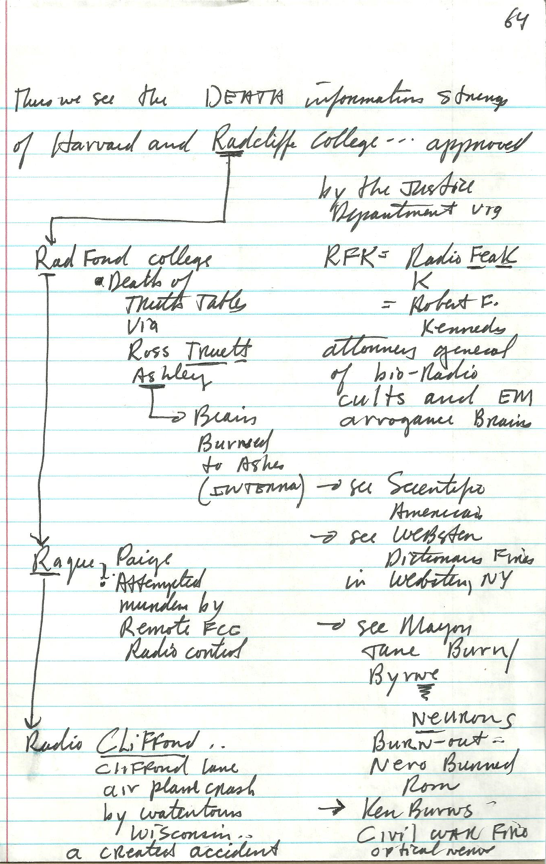 64
Thus we see the DEATH information strings
of Harvard and Radcliffe college... approved
by the Justice
Department via
RadFord college
• Death of
Truth Tables
via
Ross Truett
Ashley
Brain
Burned
to Ashes
(INTERNA)
RFK = Radio FeaK
K
= Robert F.
Kennedy
attorney general
of bio-Radio
cults and EM
arrogance Brains
→ see Scientific
American
→ see Webster
Dictionary Fires
in Webster, NY
Rague, Paige
: Attempted
murder by
Remote FCC
Radio control
→ see Mayor
Jane Burn/
Byrne
Neurons
Burn-out =
Nero Burned
Rom
→ Ken Burns
Civil WAR Fire
optical nerve
Radio Clifford..
Clifford lane
air plane crash
by watertown
Wisconsin..
a created accident